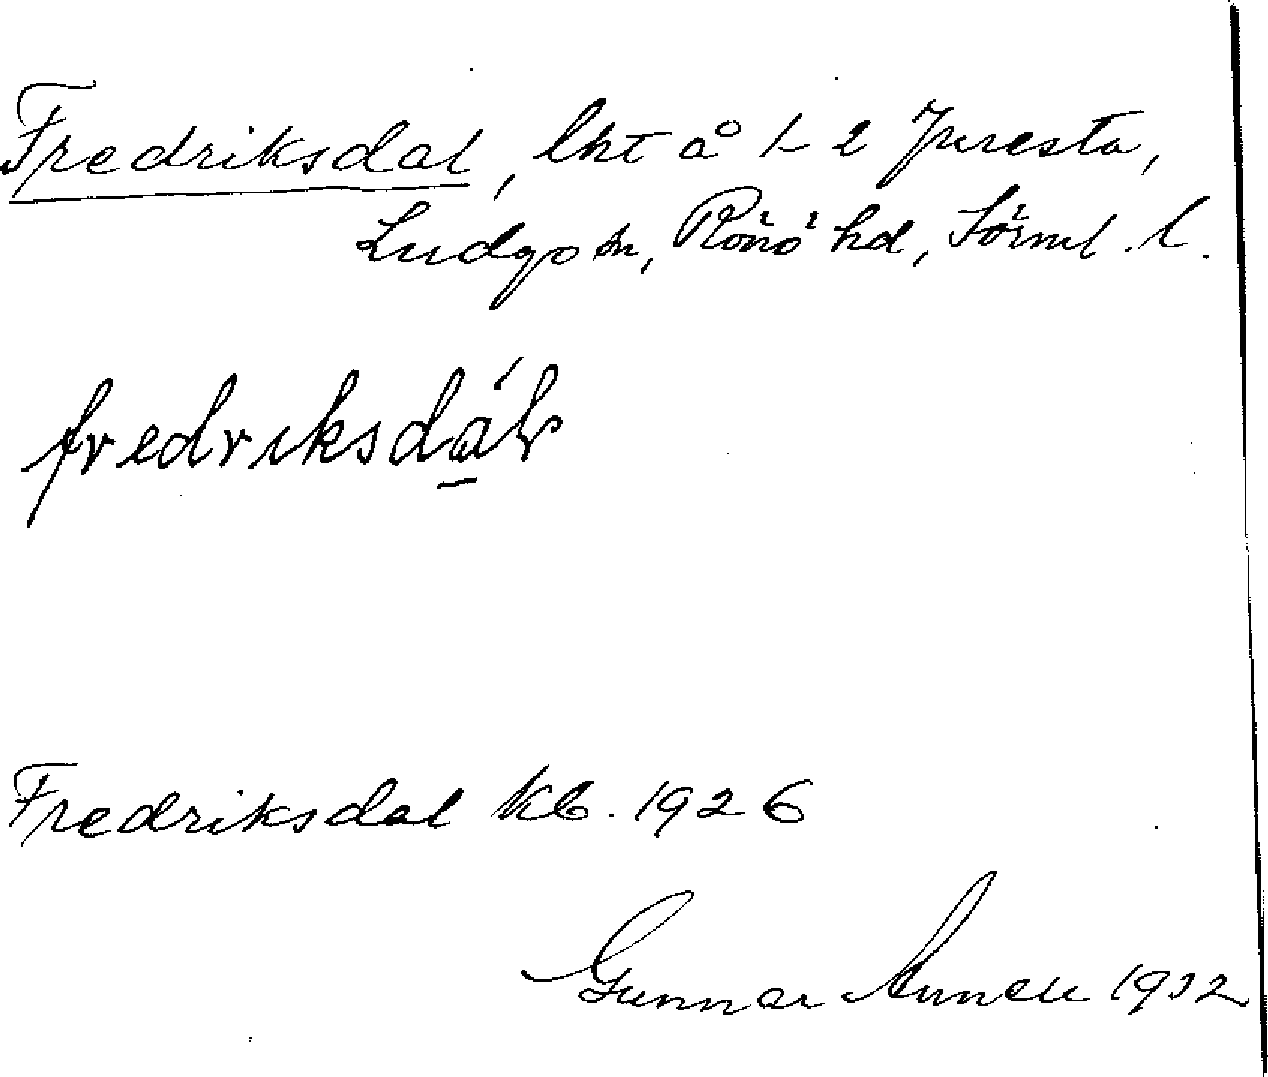 Fredriksdal, lht å 1-2 Juresta,
Ludgo sn, Rönö hd, Sörml. l.
fredriksdál
Fredriksdal Kb. 1926
Gunnar 1932